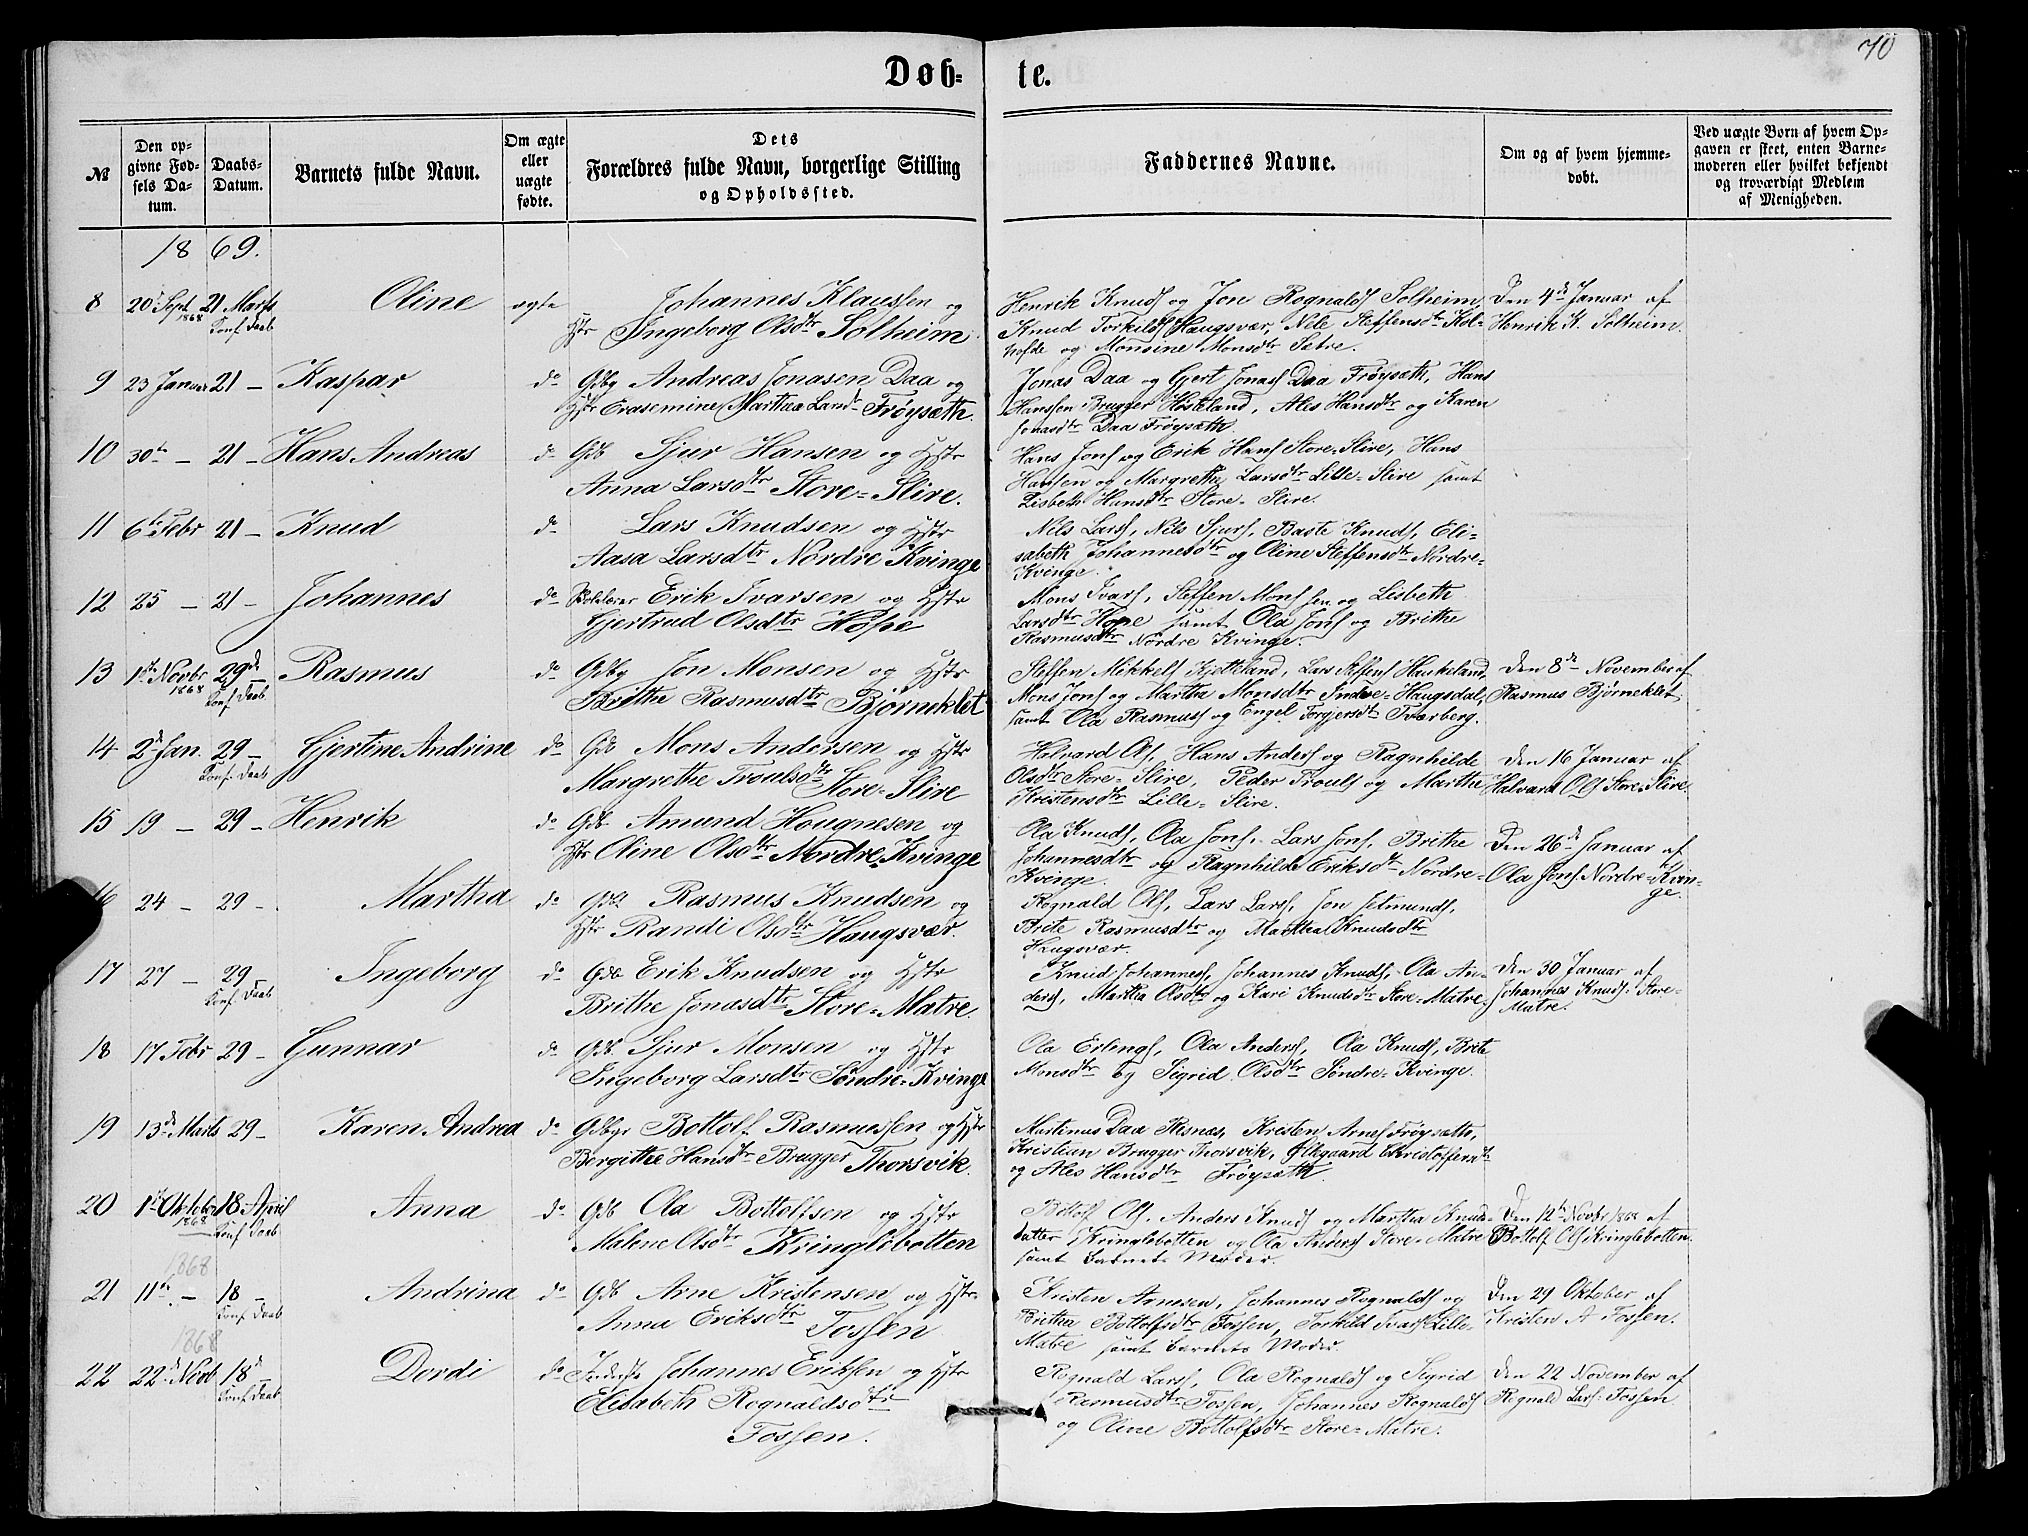 70
Døb=te.
№
Den op-
givne Fød-
sels Da-
tum.
Daabs-
Datum.
Barnets fulde Navn.
Om ægte
eller
uægte
fødte.
Dets
Forældres fulde Navn, borgerlige Stilling
og Opholdssted.
Faddernes Navne.
Om og af hvem hjemme-
døbt.
Ved uægte Børn af hvem Op-
gaven er skeet, enten Barne-
moderen eller hvilket bekjendt
og troværdigt Medlem
af Menigheden.
1869.
8 20 Sept 1868 21 Marts Konf. Daab Oline ægte
Johannes Klaussen og
Hstr Ingeborg Olsdtr Solheim
Henrik Knuds og Jon Rognalds Solheim,
Knud Torkilds Haugsvær, Nile Steffensdtr Kol-
hofde og Monsine Monsdtr Sætre.
Den 4de Januar af
Henrik K. Solheim.
9 23 Januar 21 - Kaspar do
Gdbg Andreas Jonasen Daa og
Hstr Erasemine Marthea Larsdr Frøysæth.
Jonas Daa og Gjert Jonass Daa Frøysæth, Hans
Hanssen Brugger Høsteland, Ales Hansdtr og Karen
Jonasdtr Daa Frøysæth.
10 30te - 21 - Hans Andreas do
Gdb Sjur Hansen og Hstr
Anna Larsdtr Store=Slire.
Hans Jons og Erik Hans Store=Slire, Hans
Hansen og Margrethe Larsdtr Lille=Slire samt
Lisbeth Hansdtr Store=Slire.
11 6te Febr 21 - Knud do
Lars Knudsen og Hstr
Aasa Larsdtr Nordre Kvinge
Nils Lars, Nils Sjurs, Baste Knuds, Eli-
sabeth Johannesdtr og Oline Steffensdtr Nordre-
Kvinge.
12 25 - 21 - Johannes do
Erik Ivarsen og Hstr
Gjertrud Olsdtr Hope
Mons Ivars, Steffen Monssen og Lisbeth
Larsdtr Hope samt Ola Jons og Brithe
Rasmusdtr Nordre Kvinge.
13 1ste Novbr 1868 29de Konf. Daab Rasmus do
Gdbg Jon Monsen og Hstr
Brithe Rasmusdtr Bjørneklet
Steffen Mikkels Kjetteland, Lars Steffens Haukeland,
Mons Jons og Martha Monsdtr Indre=Haugsdal,
samt Ola Rasmuss og Engel Torgjersdtr Tværberg.
Den 8de November af
Rasmus Bjørneklet.
14 2d Jan. 29 - Konf. Daab Gjertine Andrine do
Gdb Mons Andersen og Hstr
Margrethe Troulsdtr Store=Slire
Halvard Ols, Hans Anders og Ragnhilde
Olsdtr Store=Slire, Peder Trouls og Marthe
Kristensdtr Lille=Slire.
Den 16 Januar af
Halvard Ols Store=Slire.
15 19 - 29 - Henrik do
Gdb. Amund Hougnesen og
Hstr Oline Olsdtr Nordre Kvinge
Ola Knuds, Ola Jons, Lars Jons, Brithe
Johannesdtr og Ragnhilde Eriksdtr Nordre=
Kvinge.
Den 26de Januar af
Ola Jons Nordre=Kvin-
ge.
16 24 - 29 - Martha do
Gdb Rasmus Knudsen og
Hstr Randi Olsdtr Haugsvær.
Rognald Ols, Lars Lars, Jon Jetmunds,
Brite Rasmusdtr og Marthea Knudsdtr
Haugsvær.
17 27 - 29 Konf. Daab Ingeborg do
Gdb Erik Knudsen og Hstr
Brithe Jonasdtr Store=Matre.
Knud Johanness, Johannes Knuds, Ola An-
ders, Martha Olsdtr og Kari Knudsdtr Store=Matre.
Den 30 Januar af
Johannes Knuds: Store=
Matre.
18 17 Febr 29 - Gunnar do
Gdb. Sjur Monsen og Hstr
Ingeborg Larsdtr Søndre=Kvinge
Ola Erlings, Ola Anders, Ola Knuds, Brite
Monsdtr og Sigrid Olsdtr Søndre=Kvinge.
19 13de Marts 29 - Karen Andrea do
Gdbgr Bottolf Rasmussen og Hstr
Bergithe Hansdtr Brugger Thorsvik.
Martinus Daa Risnes, Kristen Arnes Frøysæth,
Kristian Brugger Thorsvik, Ølegaard Kristoffersdtr
og Ales Hansdtr Frøysæth.
20 1ste Oktober 1868 18 April Konf. Daab Anna do
Gdb Ola Bottolfsen og Hstr
Malene Olsdtr Kringlebotten
Botolf Ols, Anders Knuds og Martha Knuds-
datter Kringlebotten og Ola Anders Store=Matre
samt Barnets Moder.
Den 12te Novbr 1868 af
Bottolf Ols Kringlebotten.
1868
21 11te - 18 - Konf. Daab Andrina do
Gdb Arne Kristensen og Hstr
Anna Eriksdtr Fossen
Kristen Arnesen, Johannes Rognalds og
Brithe Bottolfsdtr Fossen, Torkild Ivars Lille=
Matre samt Barnets Moder.
Den 29 Oktober af
Kristen A Fossen.
1868
22 22de Novb 18de Konf. Daab Dordi do
Inderste Johannes Eriksen og Hstr
Elisabeth Rognaldsdtr
Fossen.
Rognald Lars, Ola Rognalds og Sigrid
Rasmusdtr Fossen, Johannes Rognalds
og Oline Bottolfsdtr Store=Matre.
Den 22 November af
Rognald Lars: Fossen